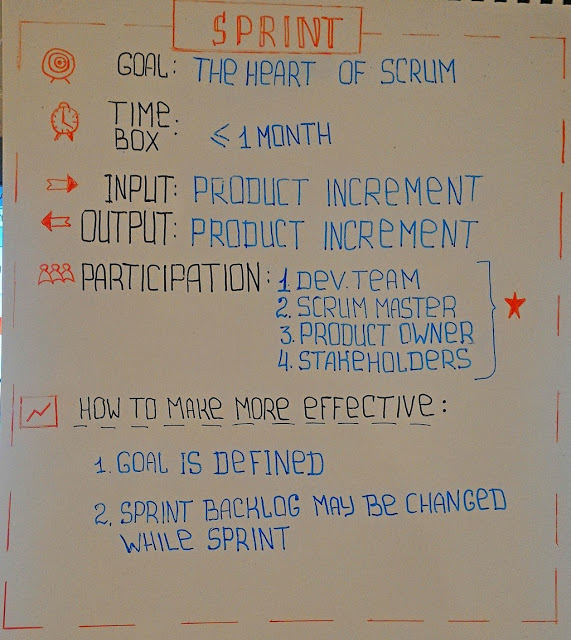 SPRINT
GOAL: THE HEART OF SCRUM
TIME BOX: ≤ 1 MONTH
INPUT: PRODUCT INCREMENT
OUTPUT: PRODUCT INCREMENT
PARTICIPATION: 1. DEV. TEAM
2. SCRUM MASTER
3. PRODUCT OWNER
4. STAKEHOLDERS
HOW TO MAKE MORE EFFECTIVE:
1. GOAL IS DEFINED
2. SPRINT BACKLOG MAY BE CHANGED
WHILE SPRINT